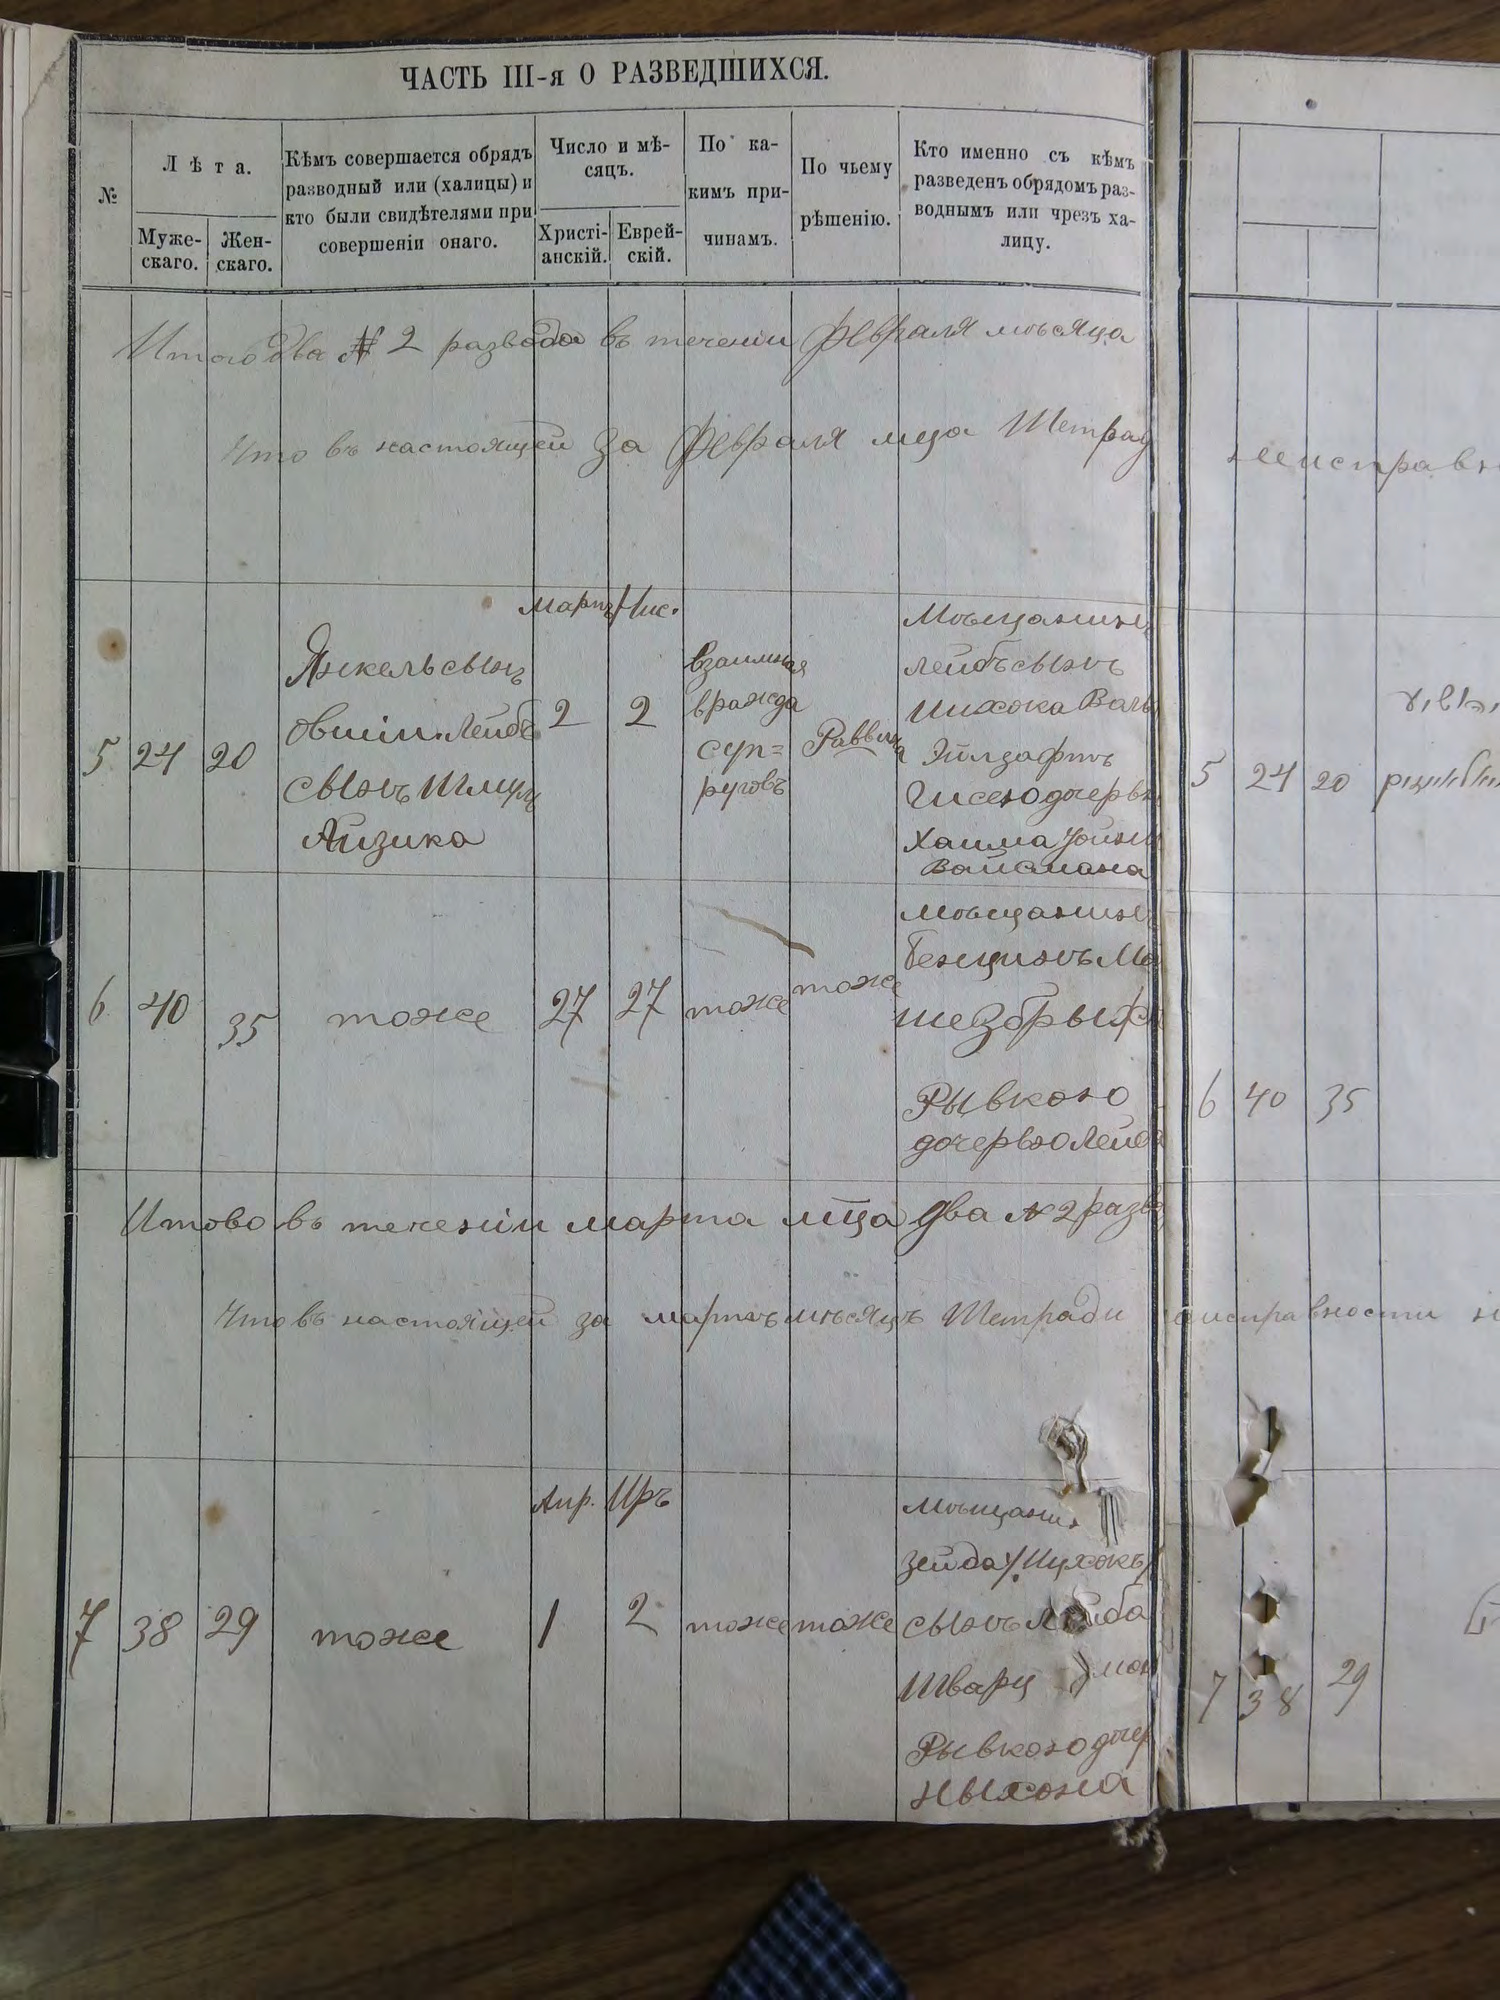 ЧАСТЬ III-я О РАЗВЕДШИХСЯ.
№
Лѣта.
Муже-
скаго.
Жен-
скаго.
Кѣмъ совершается обрядъ
разводный или (халицы) и
кто были свидѣтелями при
совершеніи онаго.
Число и мѣ-
сяцъ.
Христі-
анскій.
Еврей-
скій.
По ка-
кимъ при-
чинамъ.
По чьему
рѣшенію.
Кто именно съ кѣмъ
разведенъ обрядомъ раз-
воднымъ или чрезъ ха-
лицу.
Итого два № 2 развода въ теченіи февраля мѣсяца
Что въ настоящей за февраля мца Шетрад
5
24
20
Янкель сынъ
Овшіи. Лейбъ
сынъ Шмул
Айзика
Мартъ
2
Нис.
2
взаимная
вражда
суп=
руговъ
Раввина
Мѣщанинъ
Лейбъ сынъ
Ицхока
Эйлзафтъ
дочерью
Хаима
Вайсмана
5 24 20
6
40
35
тоже
27
27
тоже
тоже
Мѣщанинъ
Бенционъ Мо
ше
Рывкою
дочерью Лейб
6 40 35
Итово въ теченіи марта мца два № 2 разво
Что въ настоящей за мартъ мѣсяцъ Шетради
7
38
29
тоже
Апр.
1
Иръ
2
тоже
тоже
Мѣщанин
Зейда /Ицхокъ/
сынъ Лейба
Шварц
Рывкою дочер
Ныхона
7 38 29